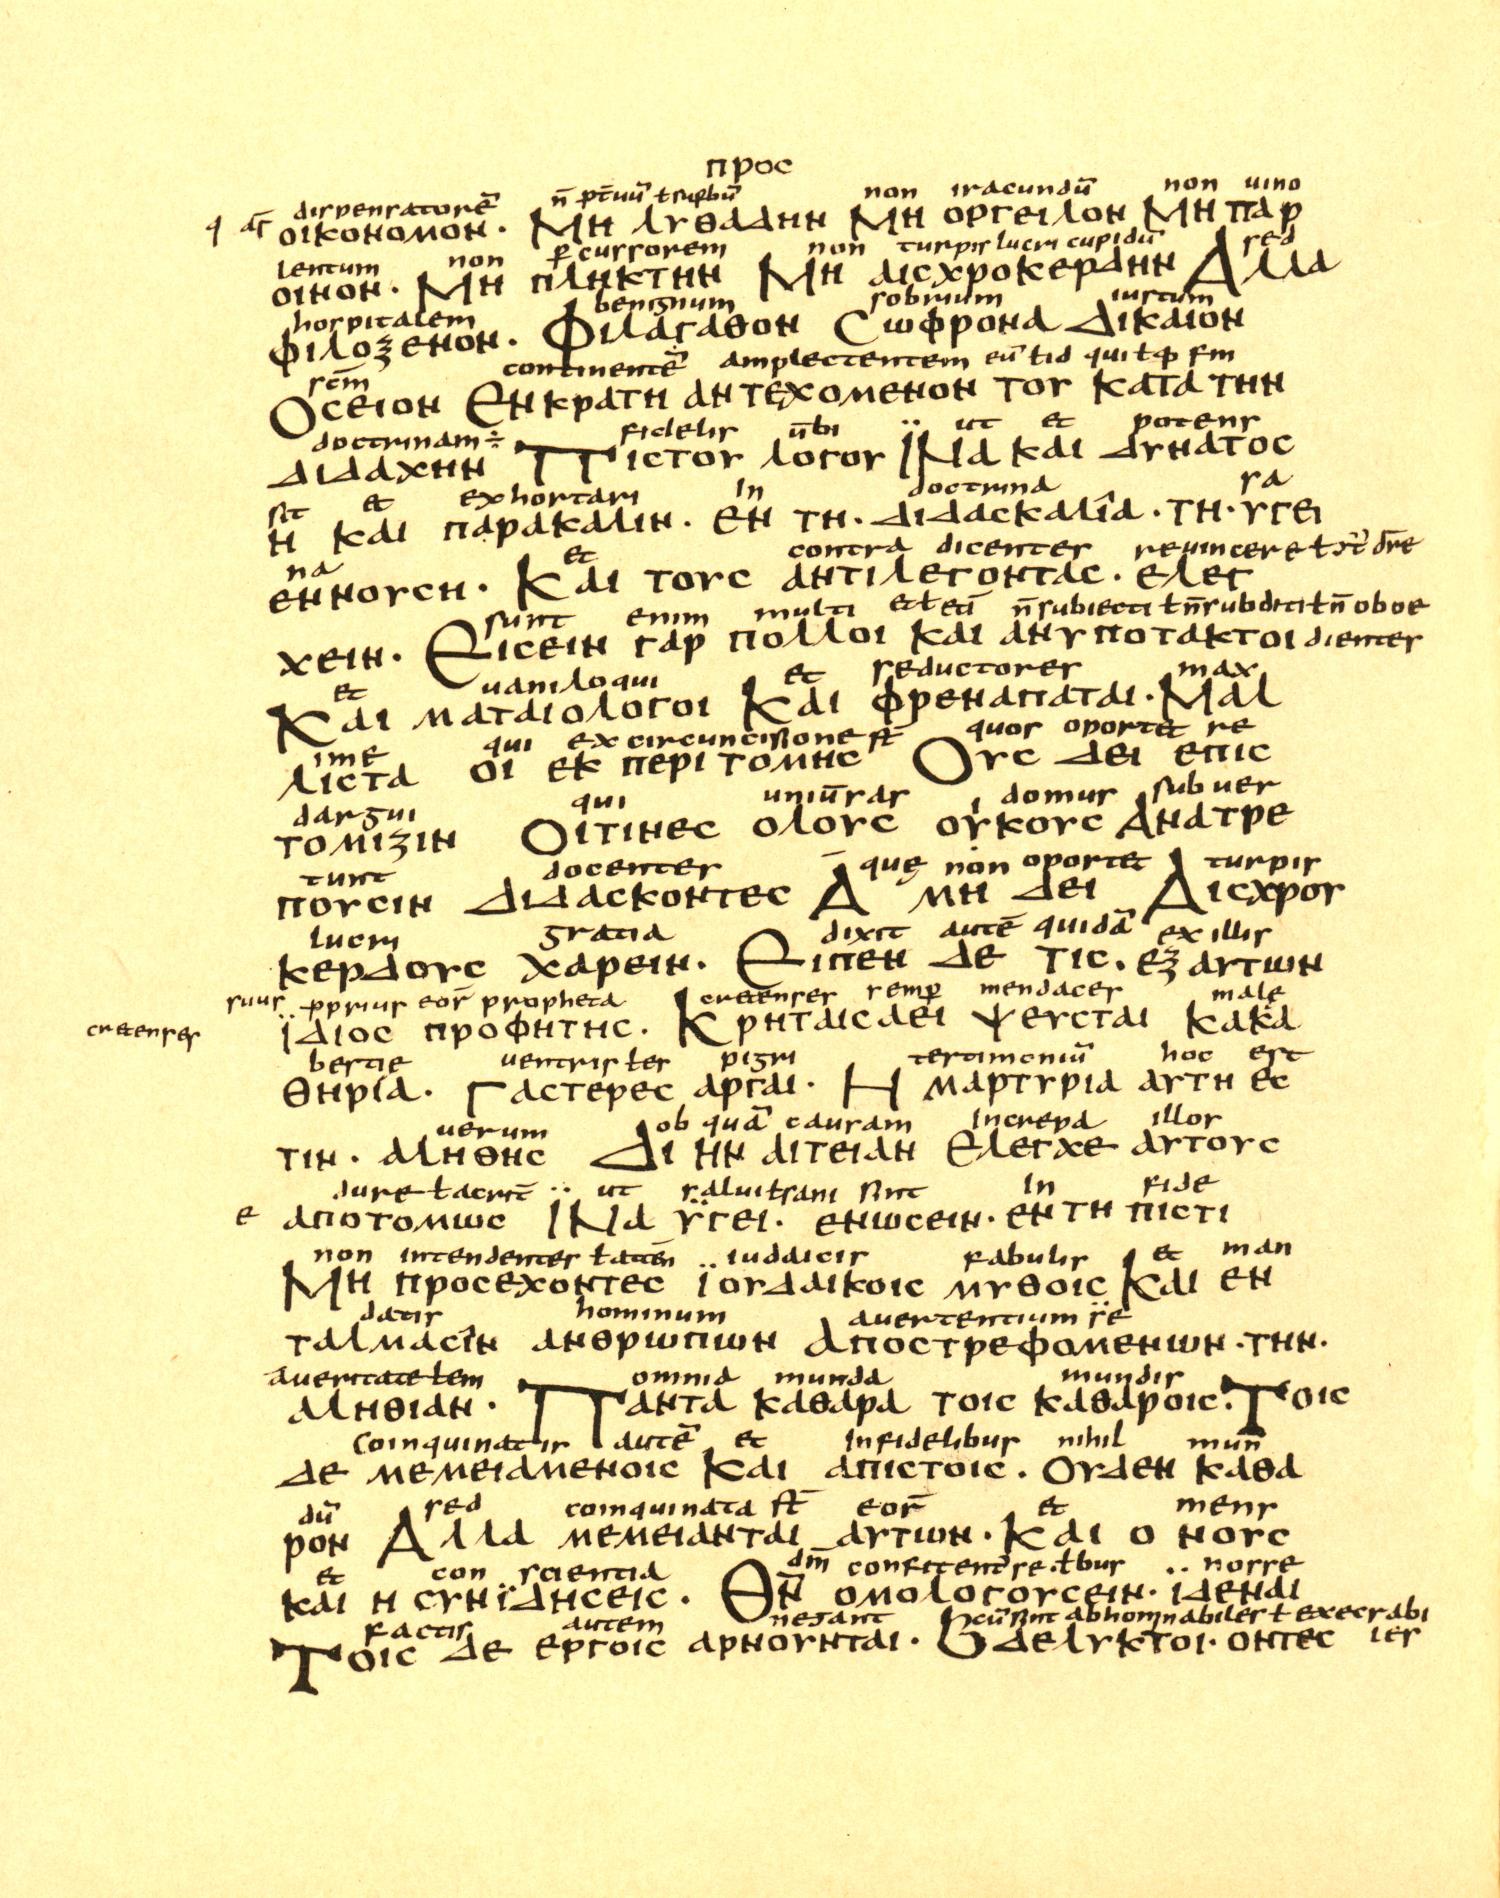 προς
dispensatorē n̄ ꝓt̄uū ł suꝑbū non iracundū non uino
οικονομον· Μη αυθαδην Μη οργειλον Μη παρ
lentum non ꝑcussorem non turpis lucri cupidū sed
οινον· Μη πληκτην Μη αισχροκερδην Αλλα
hospitalem benignum sobrium iustum
φιλοξενον· Φιλαγαθον Σωφρονα Δικαιον
scm̄ continentē amplectentem eū ł id qui
Οσειον Ενκρατη αντεχομενον του κατα την
doctrinam ÷ fidelis ūbi ut et potens
διδαχην Πιστου λογου ϊνα και δυνατος
sit et exhortari in doctrina sa
η και παρακαλιν· εν τη· διδασκαλια· τη· υγει
na et contra dicentes reuincere
εννουση· Και τους αντιλεγοντας· ελεγ
sunt enim multi et ł etiā n̄ subiecti ł n̄ subditi ł n̄ oboe
χειν· Εισειν γαρ πολλοι και ανυποτακτοι dientes
et uaniloqui et seductores max
Και ματαιολογοι Και φρεναπαται· Μαλ
ime qui ex circuncissione st̄ quos oportet re
λιστα οι εκ περιτομης Ους δει επισ
dargui qui uniūsas domus subuer
τομιζιν Οιτινες ολους οικους Ανατρε
tunt docentes que non oportet turpis
πουσιν διδασκοντες Α μη δει Αισχρου
lucri gratia dixit autē quidā ex illis
κερδους χαρειν· Ειπεν δε τις· εξ αυτων
suus ꝓprius eoꝝ propheta cretenses semꝑ mendaces male
cretenses ϊδιος προφητης· Κρηταις αει ψευσται κακα
bestie uentris ł es pigri testimoniū hoc est
θηρια· Γαστερες αργαι· Η μαρτυρια αυτη εσ
uerum ob quā causam increpa illos
τιν· αληθης Δι ην αιτειαν Ελεγχε αυτους
dure ł acrit̄ ut salui ł sani sint in fide
ε αποτομως ϊνα ϋγει· ενωσειν· εν τη πιστι
non intendentes iudaicis fabulis et man
Μη προσεχοντες ϊουδαικοις μυθοις Και εν
datis hominum auertentium se
ταλμασιν ανθρωπων Αποστρεφομενων· την·
a ueritate ł em omnia munda mundis
αληθιαν· Παντα καθαρα τοις καθαροις· Τοις
coinquinatis autē et infidelibus nihil mun
δε μεμειαμενοις Και απιστοις· Ουδεν καθα
dū sed coinquinata st̄ eoꝝ et mens
ρον Αλλα μεμειανται αυτων· Και ο νους
et con scientia dm̄ confitent nosse
και η συνϊδησεις· Θ̄ν̄ ομολογουσειν· ϊδεναι
factis autem negant cū sint abhominabiles ł execrabi
Τοις δε εργοις αρνουνται· Βδελυκτοι· οντες les